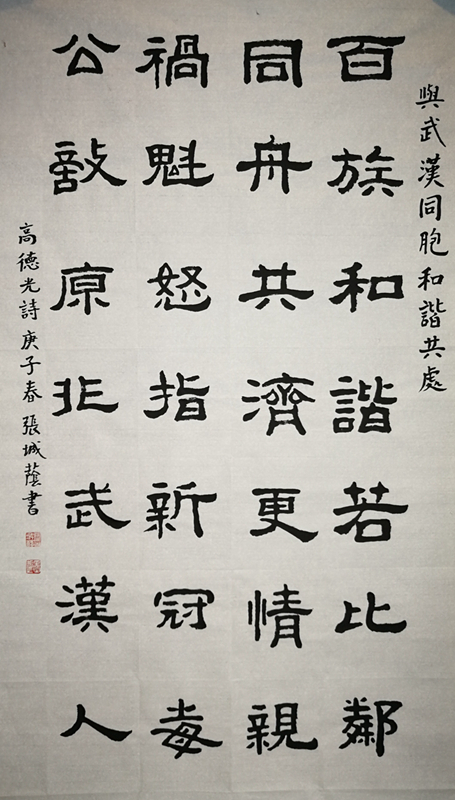 與武漢同胞和諧共處
百族和諧若比鄰
同舟共濟更情親
禍魁怒指新冠毒
公敵原非武漢人
高德光詩庚子春張城蔭書